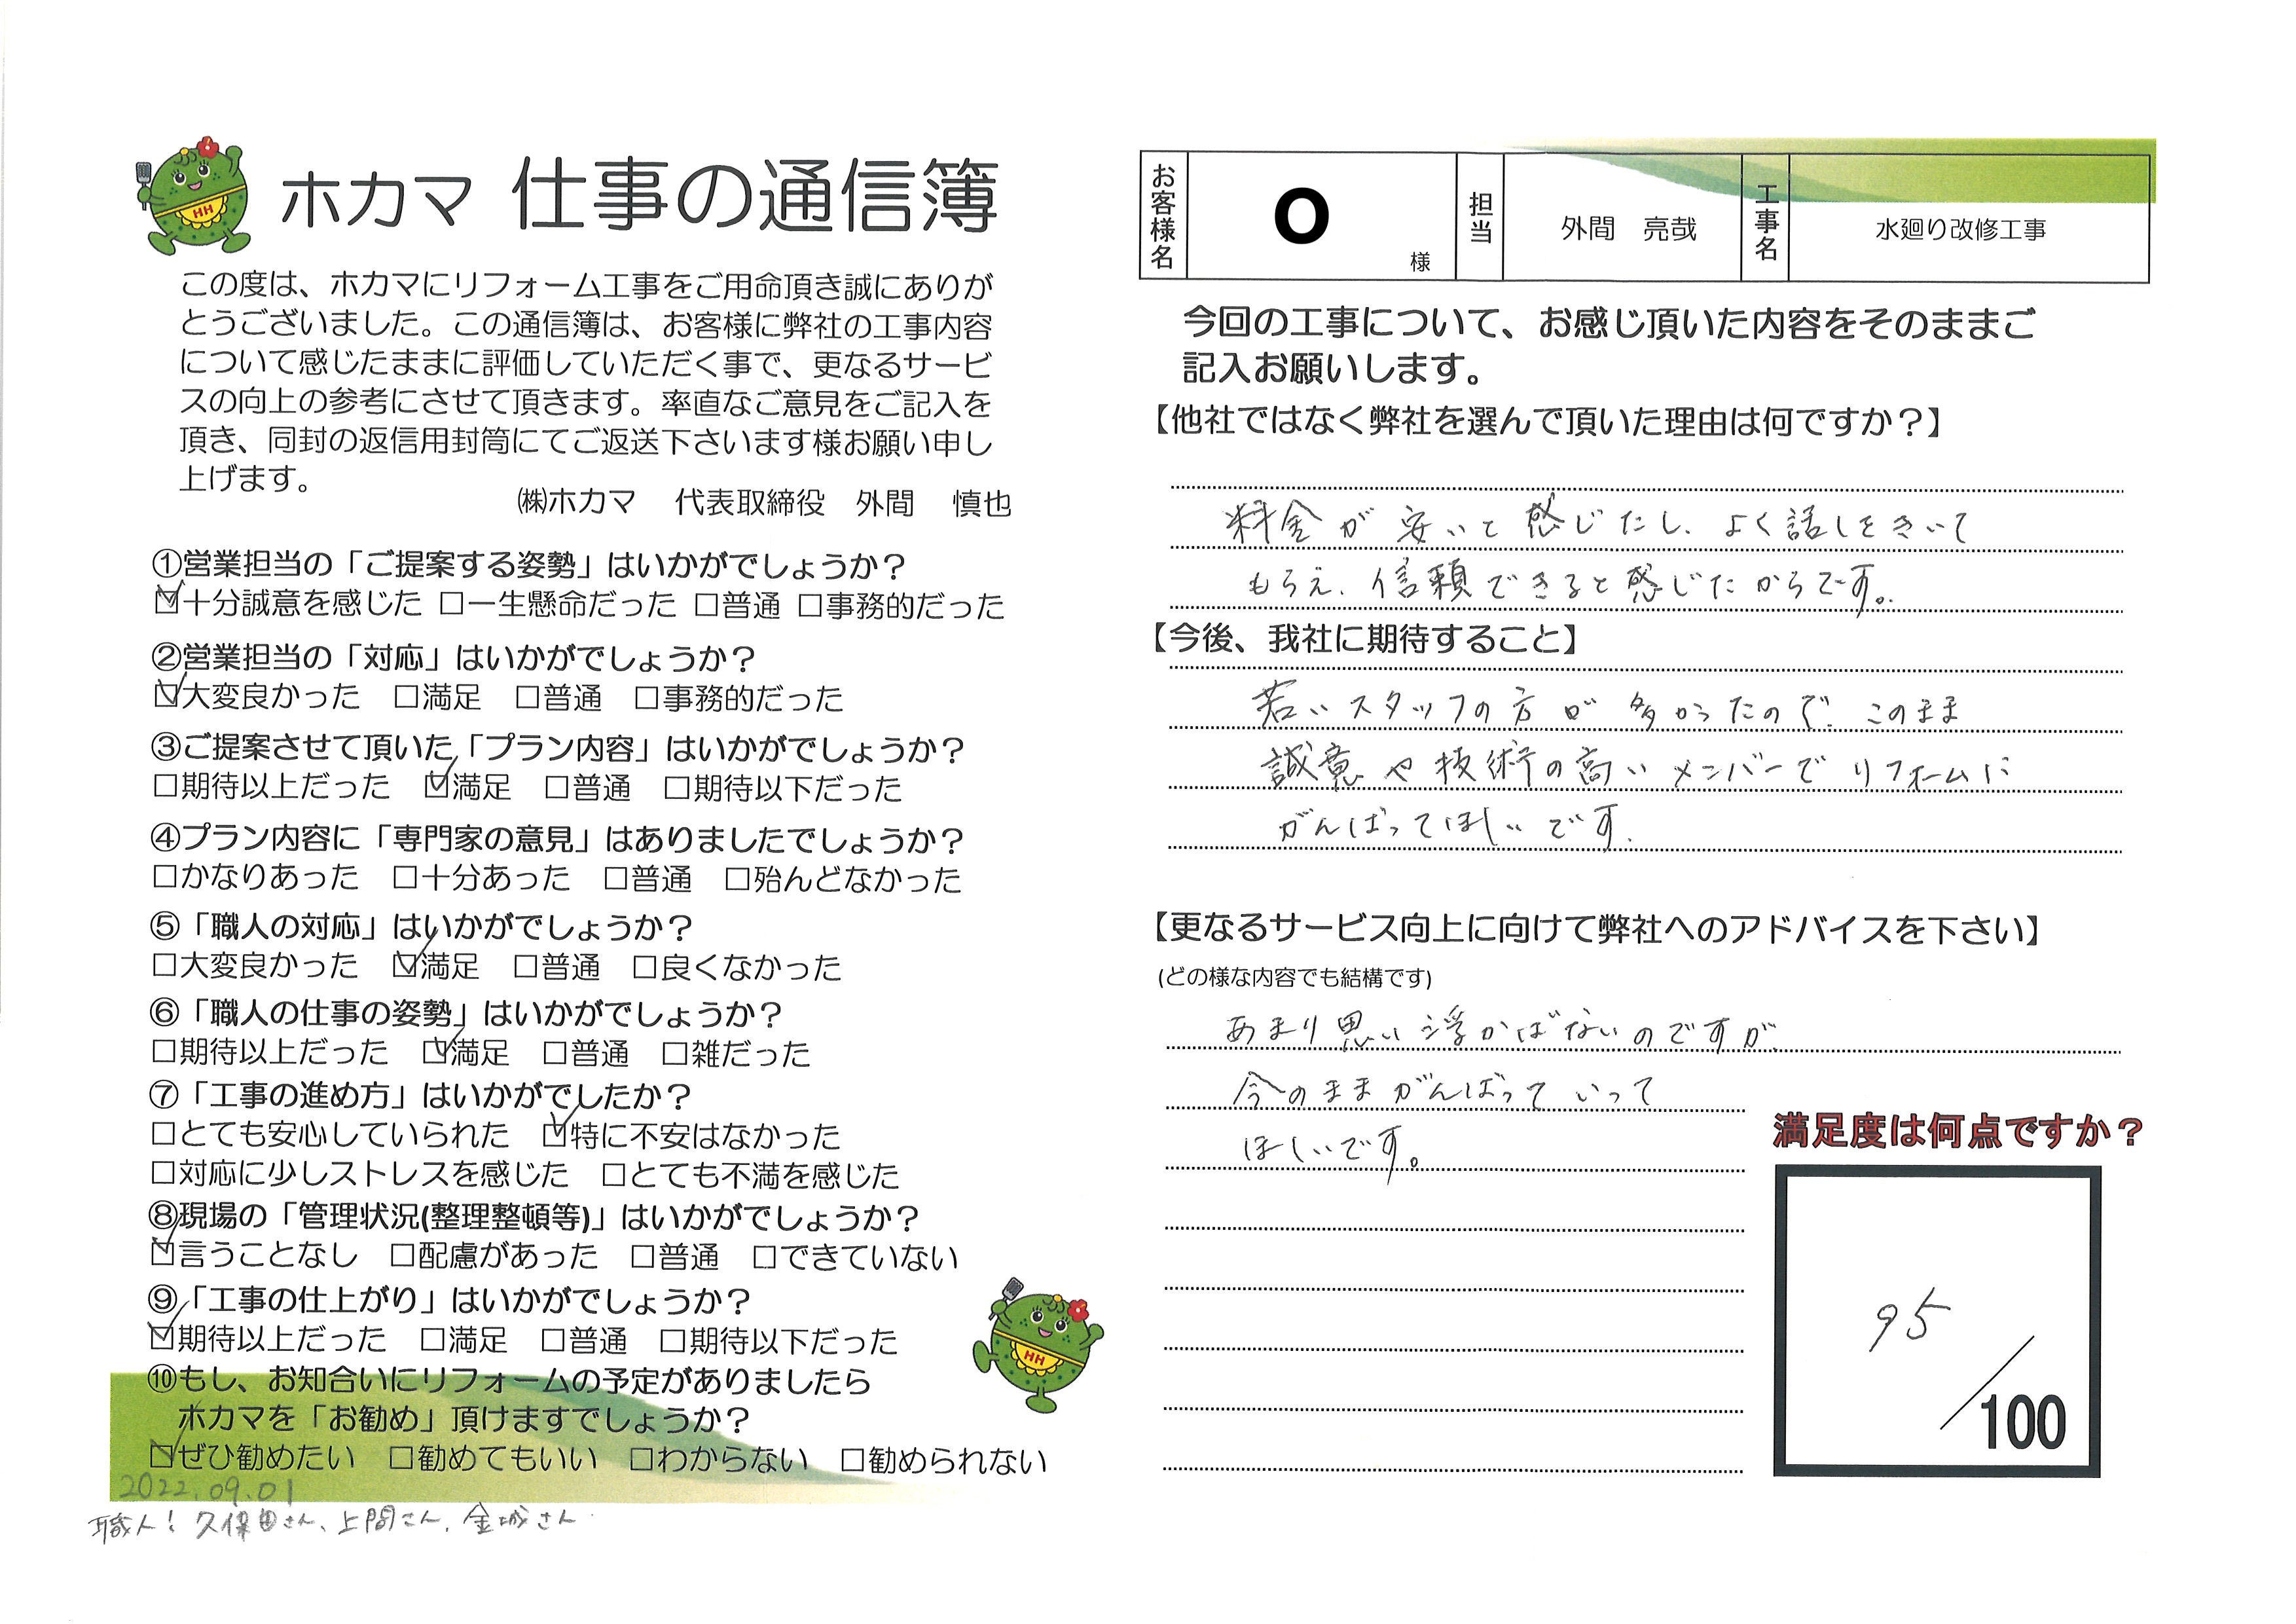 ホカマ 仕事の通信簿
この度は、ホカマにリフォーム工事をご用命頂き誠にありが
とうございました。この通信簿は、お客様に弊社の工事内容
について感じたままに評価していただく事で、更なるサービ
スの向上の参考にさせて頂きます。率直なご意見をご記入を
頂き、同封の返信用封筒にてご返送下さいます様お願い申し
上げます。
㈱ホカマ 代表取締役 外間 慎也
①営業担当の「ご提案する姿勢」はいかがでしょうか？
☑十分誠意を感じた □一生懸命だった □普通 □事務的だった
②営業担当の「対応」はいかがでしょうか？
☑大変良かった □満足 □普通 □事務的だった
③ご提案させて頂いた「プラン内容」はいかがでしょうか？
□期待以上だった ☑満足 □普通 □期待以下だった
④プラン内容に「専門家の意見」はありましたでしょうか？
□かなりあった □十分あった □普通 □殆んどなかった
⑤「職人の対応」はいかがでしょうか？
□大変良かった ☑満足 □普通 □良くなかった
⑥「職人の仕事の姿勢」はいかがでしょうか？
□期待以上だった ☑満足 □普通 □雑だった
⑦「工事の進め方」はいかがでしたか？
□とても安心していられた ☑特に不安はなかった
□対応に少しストレスを感じた □とても不満を感じた
⑧現場の「管理状況(整理整頓等)」はいかがでしょうか？
☑言うことなし □配慮があった □普通 □できていない
⑨「工事の仕上がり」はいかがでしょうか？
☑期待以上だった □満足 □普通 □期待以下だった
⑩もし、お知合いにリフォームの予定がありましたら
ホカマを「お勧め」頂けますでしょうか？
☑ぜひ勧めたい □勧めてもいい □わからない □勧められない
2022.09.01
職人！久保田さん、上間さん、金城さん
HH
HH
お客様名 O 様 担当 外間 亮哉 工事名 水廻り改修工事
今回の工事について、お感じ頂いた内容をそのままご
記入お願いします。
【他社ではなく弊社を選んで頂いた理由は何ですか？】
料金が安いと感じたし、よく話しをきいて
もらえ、信頼できると感じたからです。
【今後、我社に期待すること】
若いスタッフの方が多かったので、このまま
誠意や技術の高いメンバーでリフォームに
がんばってほしいです。
【更なるサービス向上に向けて弊社へのアドバイスを下さい】
(どの様な内容でも結構です)
あまり思い浮かばないのですが、
今のままがんばっていって
ほしいです。
満足度は何点ですか？
95
/100